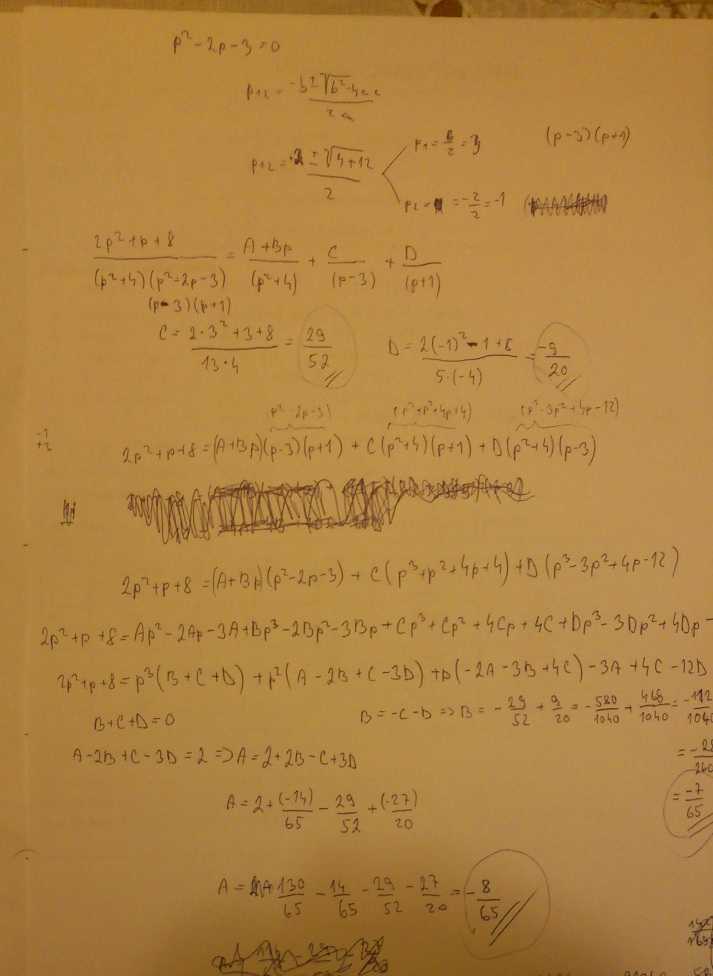 p² - 2p - 3 = 0
p₁₂ = (-b ± √(b² - 4ac)) / 2a
p₁₂ = (2 ± √(4+12)) / 2   p₁ = 6/2 = 3   (p-3)(p+1)
p₂ = -2/2 = -1
(2p² + p + 8) / ((p²+4)(p²-2p-3)) = (A + Bp)/(p²+4) + C/(p-3) + D/(p+1)
(p-3)(p+1)
C = (2·3² + 3 + 8)/(13·4) = 29/52   D = (2(-1)² - 1 + 8)/(5·(-4)) = -9/20
(p²-2p-3)   (p³+p²+4p+4)   (p³-3p²+4p-12)
2p² + p + 8 = (A+Bp)(p-3)(p+1) + C(p²+4)(p+1) + D(p²+4)(p-3)
2p² + p + 8 = (A+Bp)(p²-2p-3) + C(p³+p²+4p+4) + D(p³-3p²+4p-12)
2p² + p + 8 = Ap² - 2Ap - 3A + Bp³ - 2Bp² - 3Bp + Cp³ + Cp² + 4Cp + 4C + Dp³ - 3Dp² + 4Dp -
2p² + p + 8 = p³(B+C+D) + p²(A - 2B + C - 3D) + p(-2A - 3B + 4C) - 3A + 4C - 12D
B+C+D = 0   B = -C-D => B = -29/52 + 9/20 = -580/1040 + 468/1040 = -112/1040
A - 2B + C - 3D = 2 => A = 2 + 2B - C + 3D   = -28/260
= -7/65
A = 2 + (-14)/65 - 29/52 + (-27)/20
A = 130/65 - 14/65 - 29/52 - 27/20 = -8/65